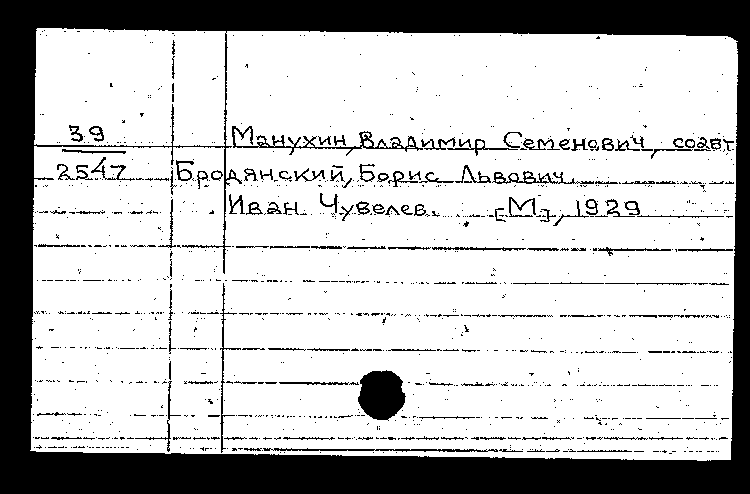 39 Манухин, Владимир Семенович, соавт
2547 Бродянский, Борис Львович.
Иван Чувелев. [М], 1929